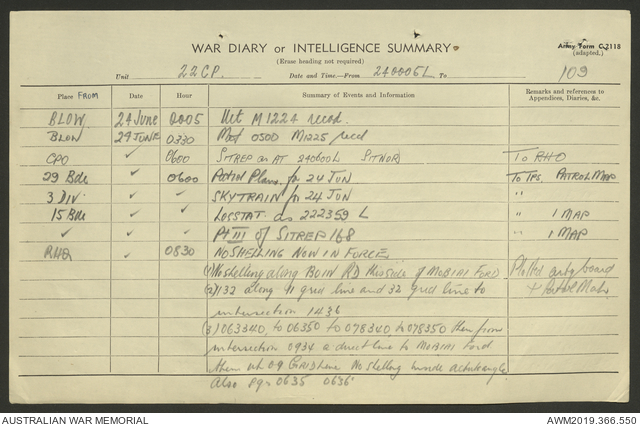 WAR DIARY or INTELLIGENCE SUMMARY.
(Erase heading not required)
Army Form C.2118
(adapted.)
Unit 22 CP. Date and Time—From 240005L To 109
Place FROM Date Hour Summary of Events and Information Remarks and references to Appendices, Diaries, &c.
BLOW. 24 June 0005 Met M1224 recd.
BLOW 24 JUNE 0330 Met 0500 M1225 recd
CPO ✓ 0600 SITREP as AT 240600L SITNOR To RHQ
29 Bde ✓ 0600 Patrol Plans for 24 JUN To TPS. PATROL MAP
3 DIV ✓ ✓ SKYTRAIN for 24 JUN "
15 Bde ✓ ✓ LOSSTAT as 222359 L " 1 MAP
✓ ✓ ✓ Pt III of SITREP 168 " 1 MAP
RHQ ✓ 0830 NO SHELLING NOW IN FORCE
(1) No shelling along BUIN RD this side of MOBIAI FORD Plotted arty board
(2) 132 along 11 grid line and 32 grid line to + Patrol Maps
intersection 1436
(3) 063340, to 06350 to 078340 to 078350 then from
intersection 0934 a direct line to MOBIAI Ford
09 Grid line No shelling inside
Also 0635 0636
AUSTRALIAN WAR MEMORIAL
AWM2019.366.550